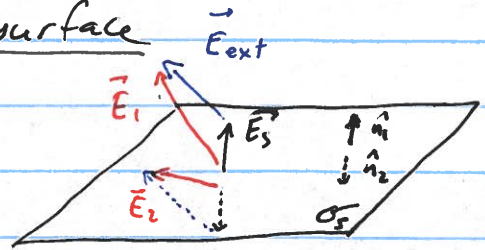 surface
E⃗ext
E⃗1
E⃗s
n̂1
n̂2
E⃗2
σs